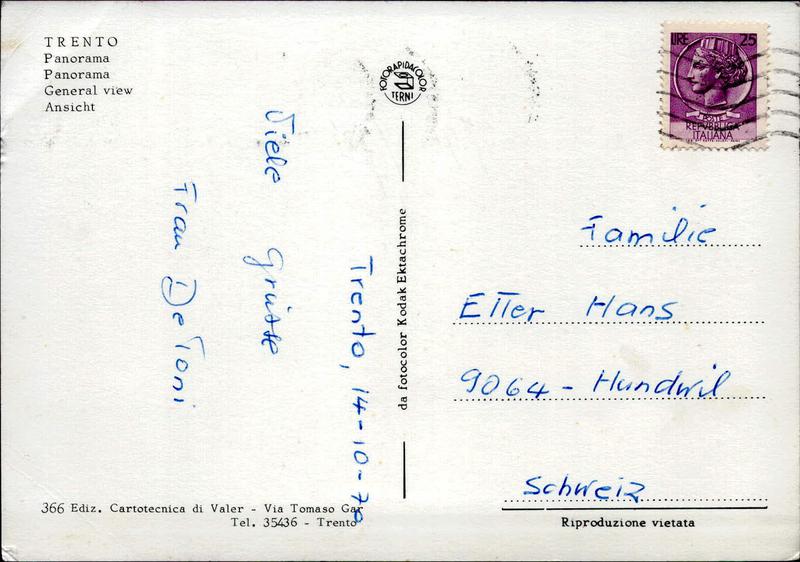 TRENTO
Panorama
Panorama
General view
Ansicht
FOTORAPIDACOLOR
TERNI
LIRE 25
POSTE
REPVBBLICA
ITALIANA
Trento, 14-10-70
Viele Grüsse
Frau DeToni
da fotocolor Kodak Ektachrome
Familie
Etter Hans
9064 - Hundwil
Schweiz
366 Ediz. Cartotecnica di Valer - Via Tomaso Gar
Tel. 35436 - Trento
Riproduzione vietata